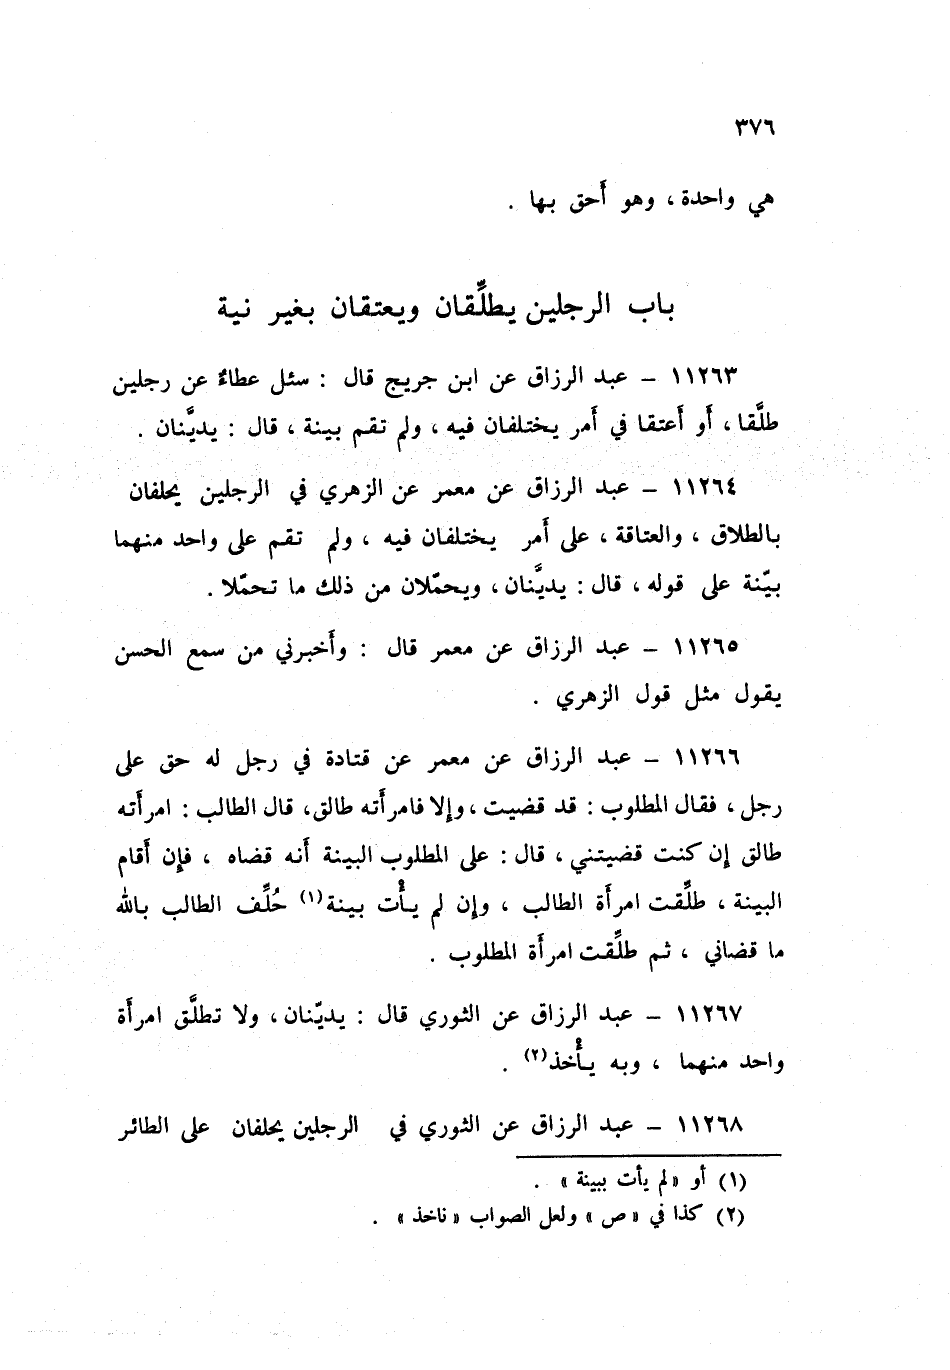 ٣٧٦
هي واحدة ، وهو أَحق بها .
باب الرجلين يطلِّقان ويعتقان بغير نية
١١٢٦٣ – عبد الرزاق عن ابن جريج قال : سئل عطاءٌ عن رجلين
طلَّقا ، أَو أَعتقا في أَمر يختلفان فيه ، ولم تقم بينة ، قال : يديَّنان .
١١٢٦٤ – عبد الرزاق عن معمر عن الزهري في الرجلين يحلفان
بالطلاق ، والعتاقة ، على أَمر يختلفان فيه ، ولم تقم على واحد منهما
بيّنة على قوله ، قال : يديَّنان ، ويحمّلان من ذلك ما تحمّلا .
١١٢٦٥ – عبد الرزاق عن معمر قال : وأَخبرني من سمع الحسن
يقول مثل قول الزهري .
١١٢٦٦ – عبد الرزاق عن معمر عن قتادة في رجل له حق على
رجل ، فقال المطلوب : قد قضيت ، وإلا فامرأَته طالق، قال الطالب : امرأَته
طالق إن كنت قضيتني ، قال : على المطلوب البينة أَنه قضاه ، فإن أَقام
البينة ، طلِّقت امرأَة الطالب ، وإن لم يأْت بينة(١) حُلِّف الطالب بالله
ما قضاني ، ثم طلِّقت امرأَة المطلوب .
١١٢٦٧ – عبد الرزاق عن الثوري قال : يديّنان ، ولا تطلَّق امرأَة
واحد منهما ، وبه يأْخذ(٢) .
١١٢٦٨ – عبد الرزاق عن الثوري في الرجلين يحلفان على الطائر
(١) أو «لم يأت ببينة» .
(٢) كذا في «ص» ولعل الصواب «ناخذ» .